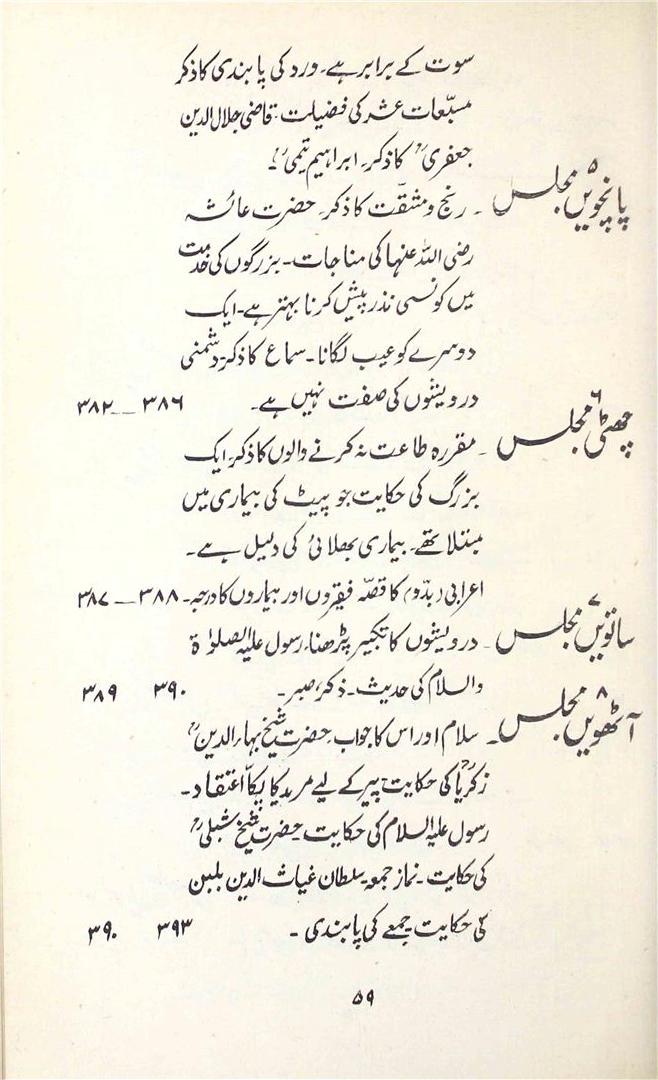 سوت کے برابر ہے۔ ورد کی پابندی کا ذکر
مسبّعات عشر کی فضیلت۔ قاضی جلال الدین
جعفریؒ کا ذکر۔ ابراہیم تیمیؒ۔
پانچویں ۵ مجلس ۔ رنج و مشقّت کا ذکر۔ حضرت عائشہ
رضی اللہ عنہا کی مناجات۔ بزرگوں کی خدمت
میں کونسی نذر پیش کرنا بہتر ہے۔ ایک
دوسرے کو عیب لگانا۔ سماع کا ذکر۔ دشمنی
درویشوں کی صفت نہیں ہے۔ ۳۸۶ __ ۳۸۲
چھٹی ۶ مجلس ۔ مقررہ طاعت نہ کرنے والوں کا ذکر۔ ایک
بزرگ کی حکایت جو پیٹ کی بیماری میں
مبتلا تھے۔ بیماری بھلائی کی دلیل ہے۔
اعرابی (بدّو) کا قصّہ فقیروں اور بیماروں کا درجہ۔ ۳۸۸ __ ۳۸۷
ساتویں ۷ مجلس ۔ درویشوں کا تکبیر پڑھنا، رسول علیہ الصلوٰۃ
والسلام کی حدیث۔ ذکر، صبر۔ ۳۹۰ ۳۸۹
آٹھویں ۸ مجلس ۔ سلام اور اس کا جواب۔ حضرت شیخ بہاء الدینؒ
زکریاؒ کی حکایت۔ پیر کے لیے مرید کا پکّا اعتقاد۔
رسول علیہ السلام کی حکایت۔ حضرت شیخ شبلیؒ
کی حکایت۔ نماز جمعہ۔ سلطان غیاث الدین بلبن
کی حکایت۔ جمعے کی پابندی ۔ ۳۹۳ ۳۹۰
۵۹